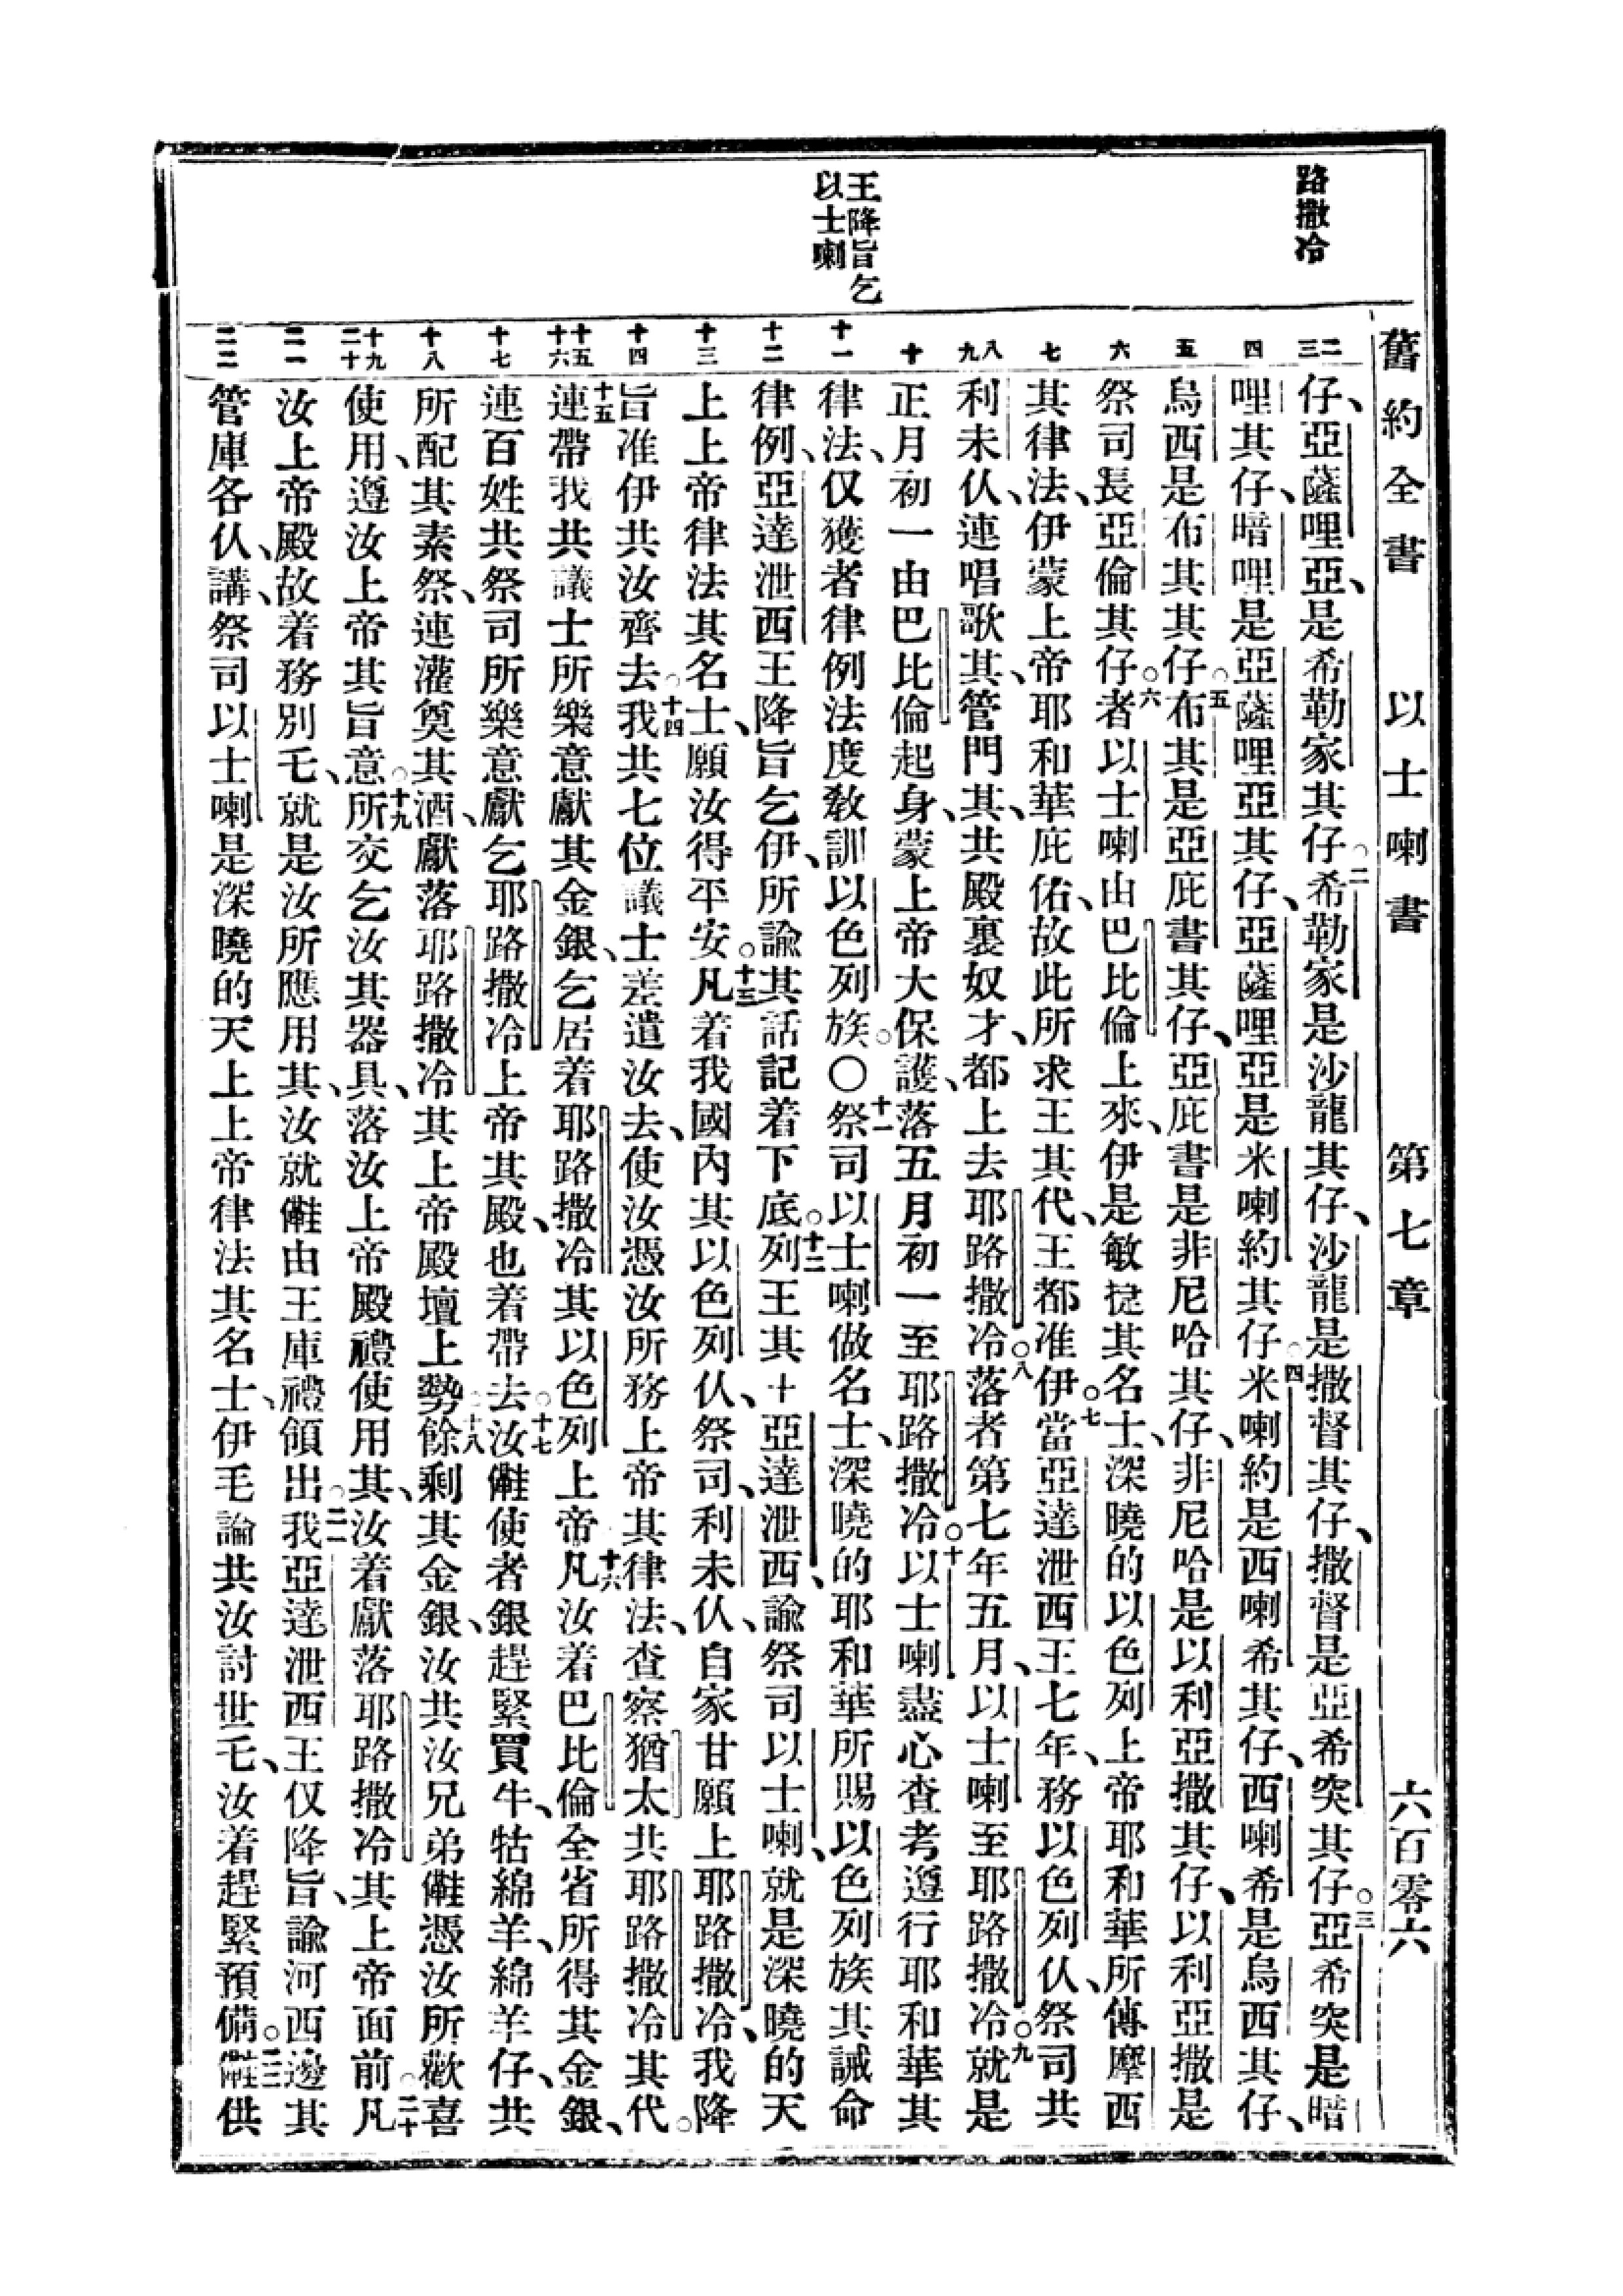 舊約全書 以士喇書 第七章 六百零六
路撒冷
王降旨乞
以士喇
仔、亞薩哩亞、是希勒家其仔○二希勒家是沙龍其仔、沙龍是撒督其仔、撒督是亞希突其仔○三亞希突是暗
哩其仔、暗哩是亞薩哩亞其仔、亞薩哩亞是米喇約其仔○四米喇約是西喇希其仔、西喇希是烏西其仔、
烏西是布其其仔○五布其是亞庇書其仔、亞庇書是非尼哈其仔、非尼哈是以利亞撒其仔、以利亞撒是
祭司長亞倫其仔○六者以士喇由巴比倫上來、伊是敏捷其名士、深曉的以色列上帝耶和華所傳摩西
其律法、伊蒙上帝耶和華庇佑、故此所求王其代、王都准伊○七當亞達泄西王七年、務以色列仈、祭司共
利未仈、連唱歌其、管門其、共殿裏奴才、都上去耶路撒冷○八落者第七年五月、以士喇至耶路撒冷○九就是
正月初一由巴比倫起身、蒙上帝大保護、落五月初一至耶路撒冷○十以士喇盡心查考遵行耶和華其
律法、仅獲者律例法度教訓以色列族○〇十一祭司以士喇做名士、深曉的耶和華所賜以色列族其誡命
律例、亞達泄西王降旨乞伊、所諭其話記着下底○十二列王其王亞達泄西、諭祭司以士喇、就是深曉的天
上上帝律法其名士、願汝得平安○十三凡着我國內其以色列仈、祭司、利未仈、自家甘願上耶路撒冷、我降
旨准伊共汝齊去○十四我共七位議士差遣汝去、使汝憑汝所務上帝其律法、查察猶太共耶路撒冷其代○
十五連帶我共議士所樂意獻其金銀、乞居着耶路撒冷其以色列上帝十六凡汝着巴比倫全省所得其金銀、
連百姓共祭司所樂意獻乞耶路撒冷上帝其殿、也着帶去○十七汝𠆧使者銀趕緊買牛、牯綿羊、綿羊仔、共
所配其素祭、連灌奠其酒、獻落耶路撒冷其上帝殿壇上○十八勢餘剩其金銀、汝共汝兄弟𠆧憑汝所歡喜
使用、遵汝上帝其旨意○十九所交乞汝其器具、落汝上帝殿禮使用其、汝着獻落耶路撒冷其上帝面前○二十凡
汝上帝殿故着務別乇、就是汝所應用其、汝就𠆧由王庫禮領出○二一我亞達泄西王仅降旨、諭河西邊其
管庫各仈、講、祭司以士喇是深曉的天上上帝律法其名士、伊毛論共汝討世乇、汝着趕緊預備○二二𠆧供
二三
四
五
六
七
八九
十
十一
十二
十三
十四
十五十六
十七
十八
十九二十
二一
二二